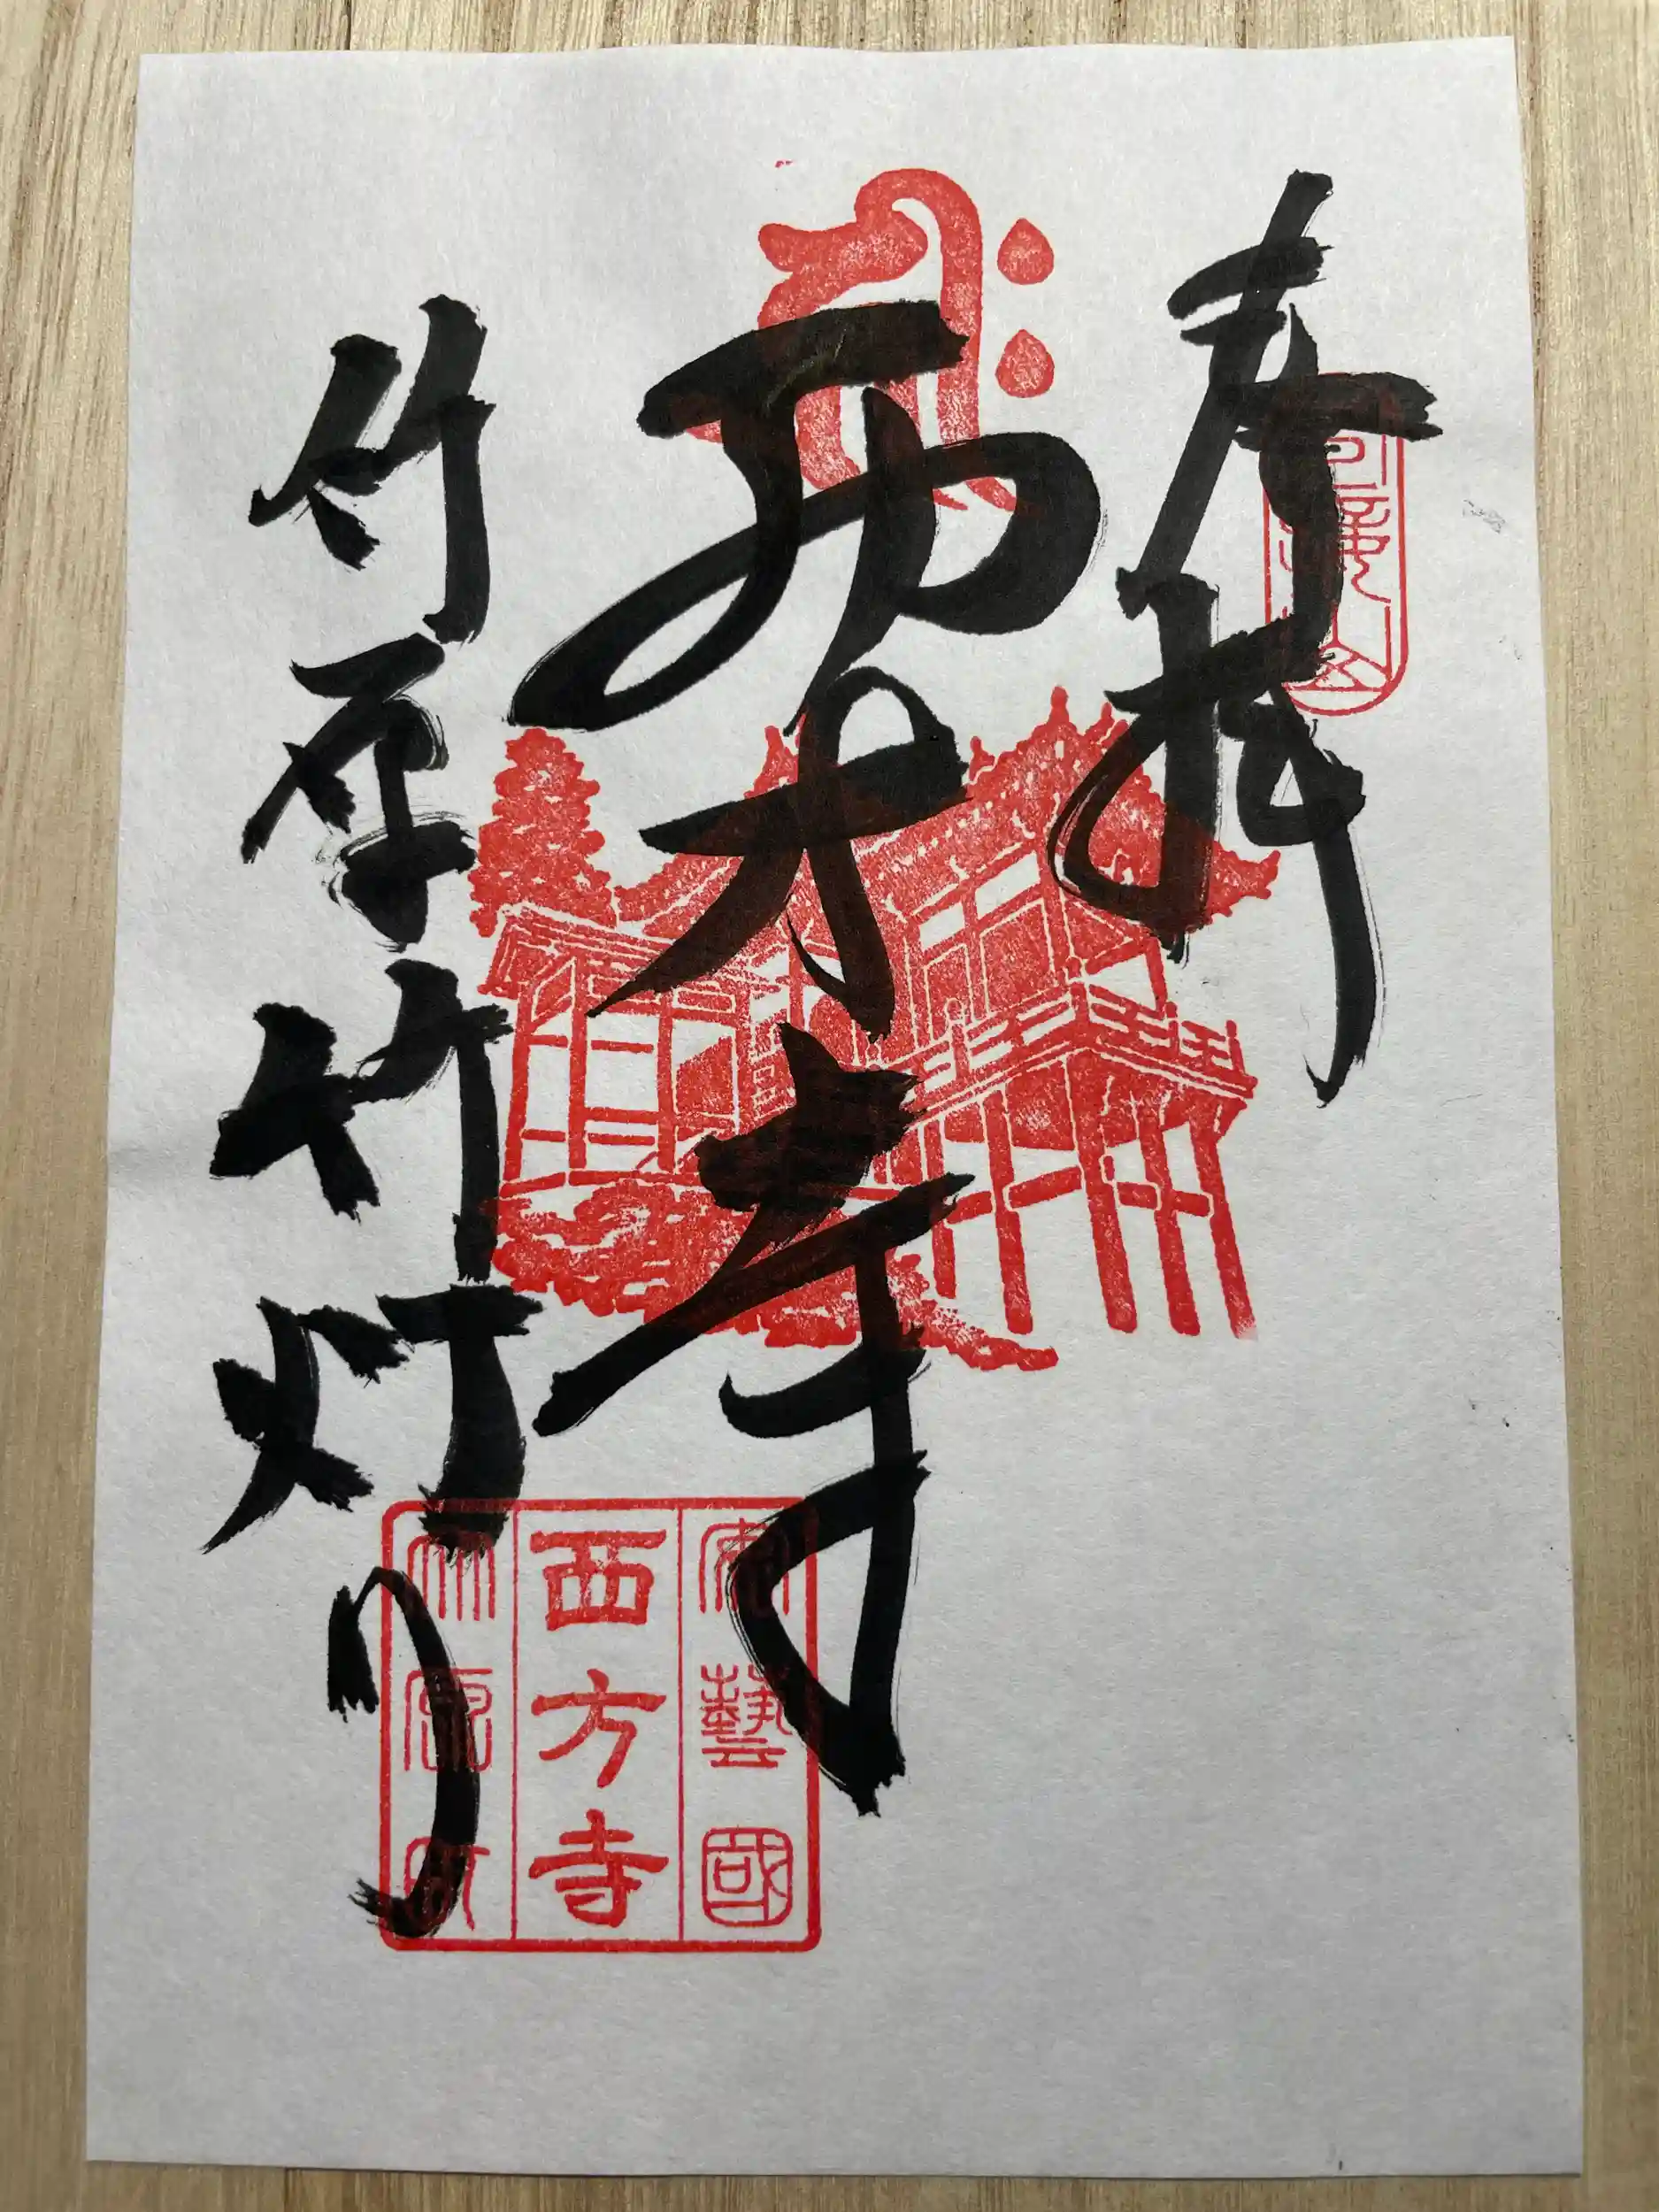 奉拝
西方寺
竹原竹灯り
安藝國
西方寺
竹原